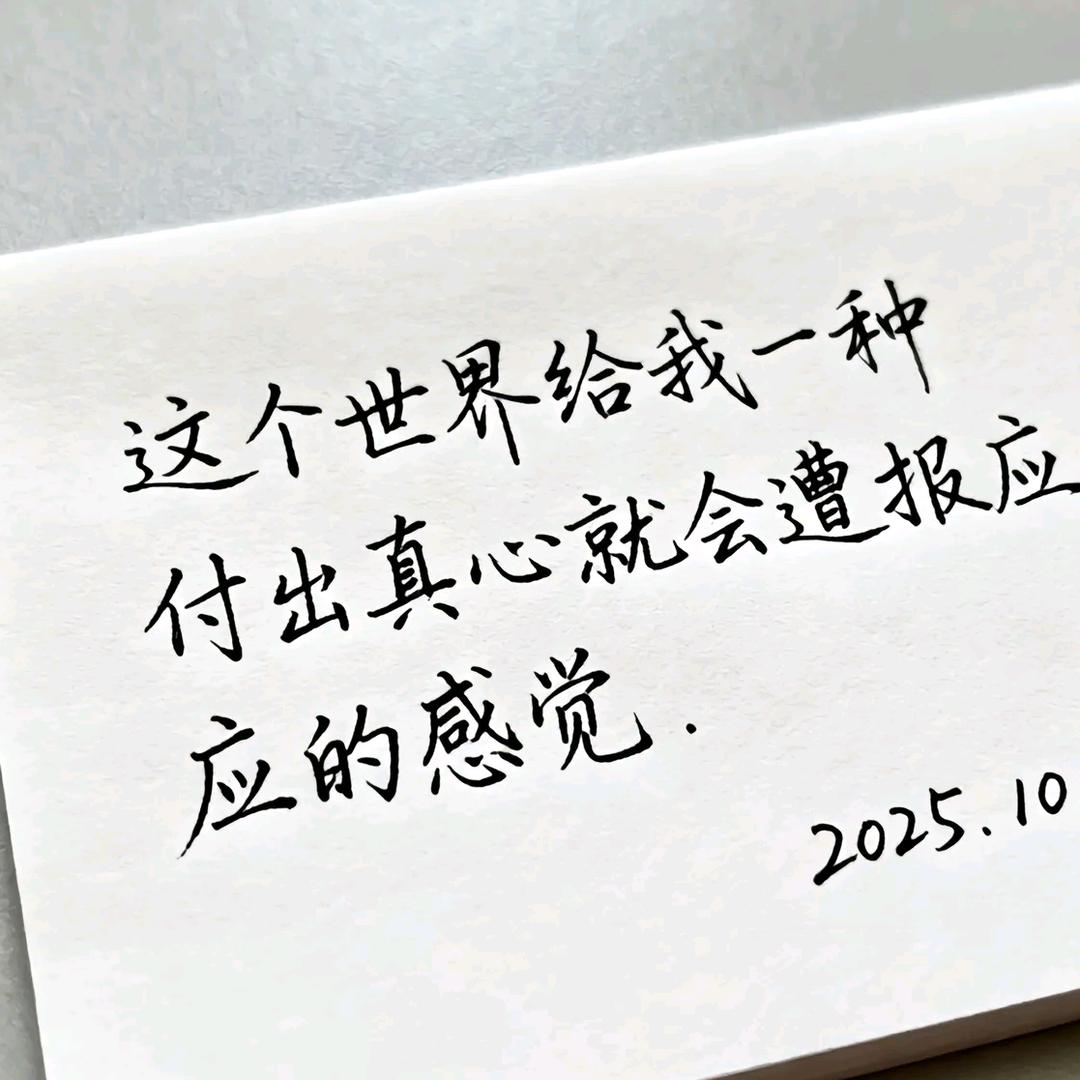 这个世界给我一种
付出真心就会遭报应
应的感觉.
2025.10